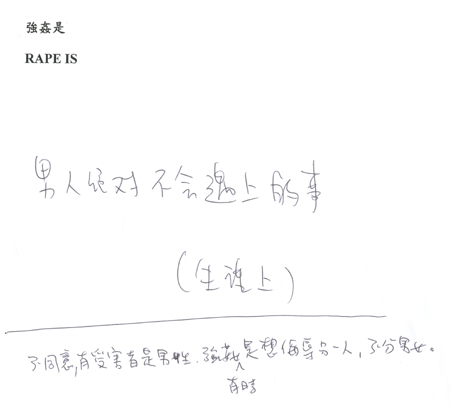 強姦是
RAPE IS
男人绝对不会遇上的事
(生理上)
不同意,有受害者是男性. 強姦是想侮辱另一人,不分男女。
有時